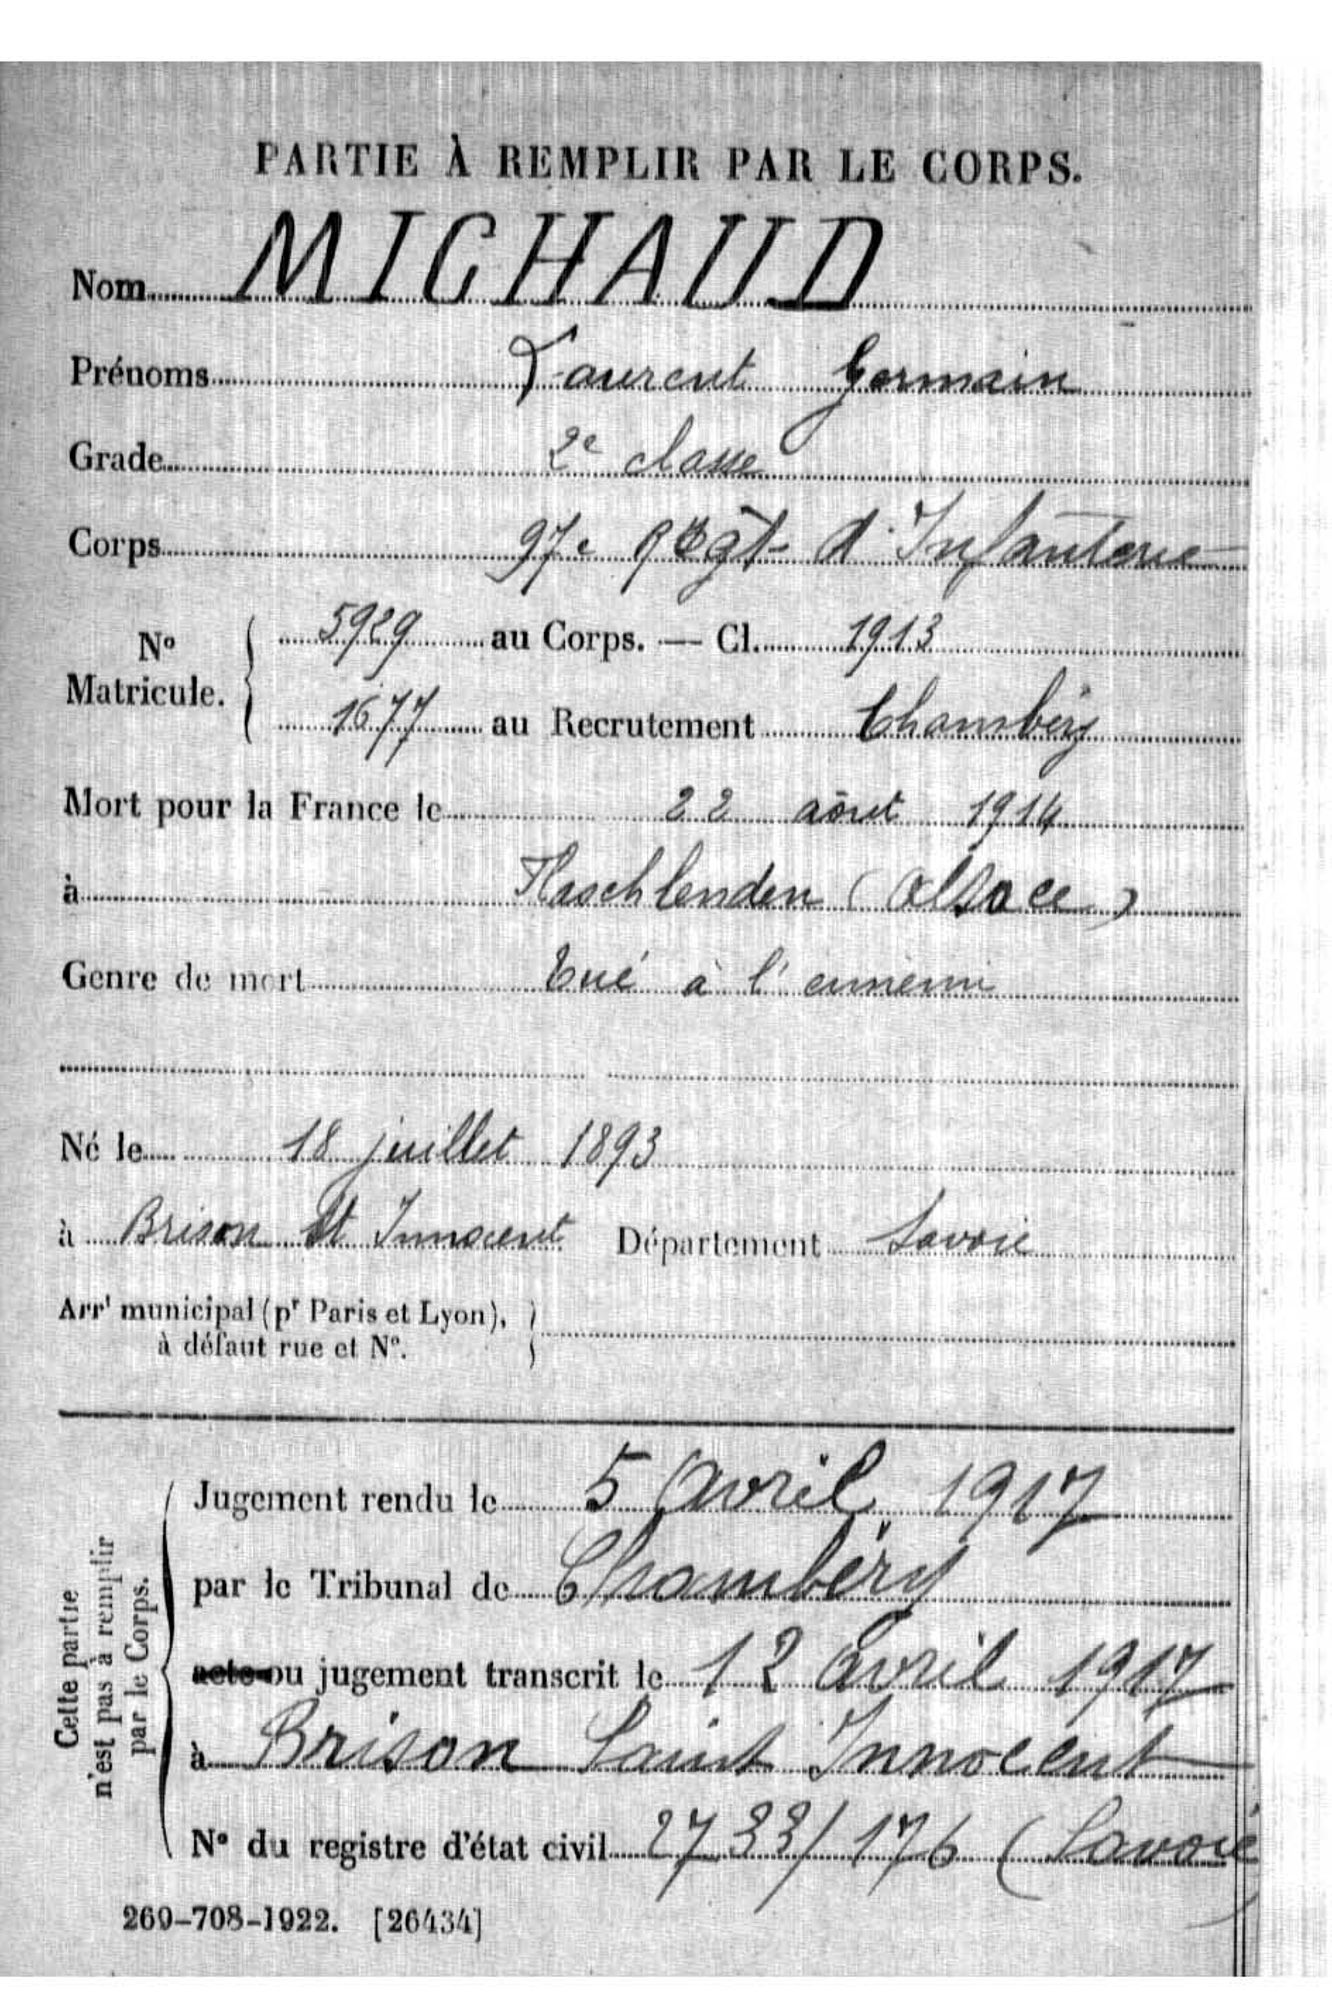 PARTIE À REMPLIR PAR LE CORPS.
Nom MICHAUD
Prénoms Laurent Germain
Grade 2e classe
Corps 97e Régt d'Infanterie
No Matricule. 5929 au Corps. — Cl. 1913
1677 au Recrutement Chambéry
Mort pour la France le 22 août 1914
à Flaschlenden (Alsace)
Genre de mort Tué à l'ennemi
Né le 18 juillet 1893
à Brison St Innocent Département Savoie
Arrt municipal (pr Paris et Lyon),
à défaut rue et N°.
Cette partie
n'est pas à remplir
par le Corps.
Jugement rendu le 5 Avril 1917
par le Tribunal de Chambéry
acte ou jugement transcrit le 12 Avril 1917
à Brison Saint Innocent
N° du registre d'état civil 2733/176 (Savoie)
269-708-1922. [26434]